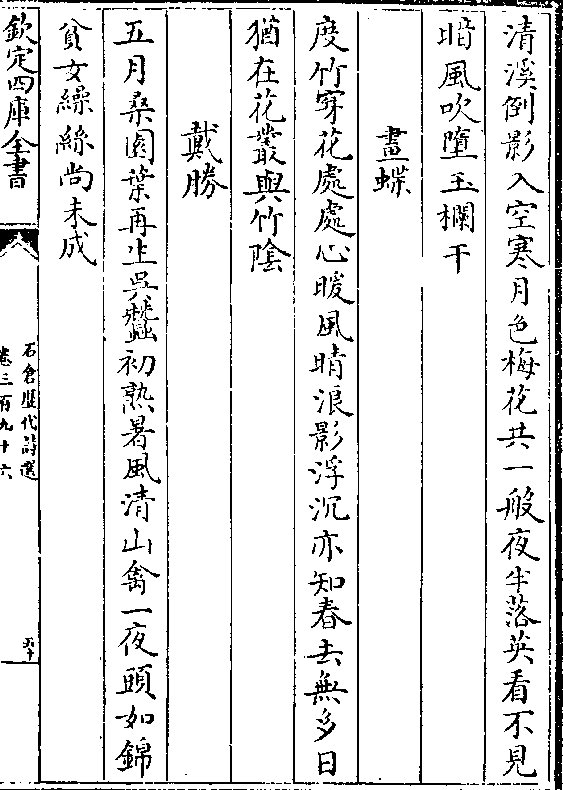 清溪倒影入空寒月色梅花共一般夜半落英看不見
暗風吹墮玉欄干
畫蝶
度竹穿花處處心暖風晴浪影浮沉亦知春去無多日
猶在花叢與竹陰
戴勝
五月桑園葉再生吳蠶初熟暑風清山禽一夜頭如錦
貧女繰絲尚未成
欽定四庫全書
石倉歷代詩選
卷三百九十六
五十